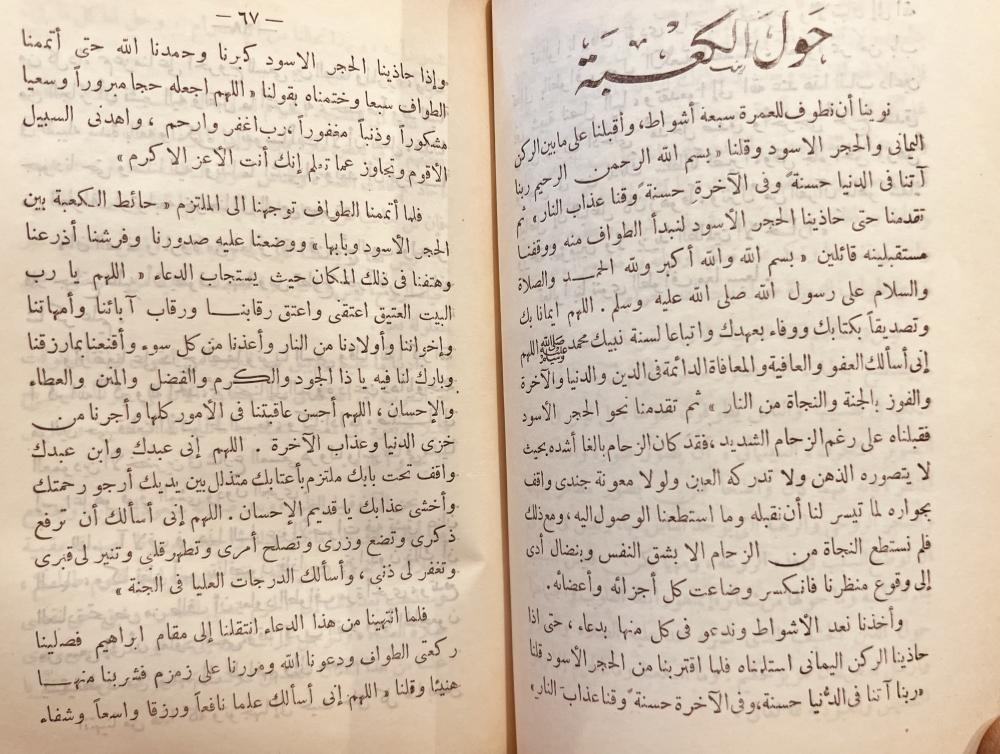 حَولَ الكَعْبَة
نوينا أن نطوف للعمرة سبعة أشواط، وأقبلنا على ما بين الركن
اليمانى والحجر الاسود وقلنا « بسم الله الرحمن الرحيم ربنا
آتنا فى الدنيا حسنةً وفى الآخرة حسنةً وقنا عذاب النار » ثم
تقدمنا حتى حاذينا الحجر الاسود لنبدأ الطواف منه ووقفنا
مستقبلينه قائلين « بسم الله والله أكبر ولله الحمد والصلاة
والسلام على رسول الله صلى الله عليه وسلم . اللهم ايمانا بك
وتصديقاً بكتابك ووفاء بعهدك واتباعا لسنة نبيك محمد ﷺ اللهم
إنى أسألك العفو والعافية والمعافاة الدائمة فى الدين والدنيا والآخرة
والفوز بالجنة والنجاة من النار » ثم تقدمنا نحو الحجر الأسود
فقبلناه على رغم الزحام الشديد ، فقد كان الزحام بالغا أشده بحيث
لا يتصوره الذهن ولا تدركه العين ولولا معونة جندى واقف
بجواره لما تيسر لنا أن نقبله وما استطعنا الوصول اليه ، ومع ذلك
فلم نستطع النجاة من الزحام الا بشق النفس وبنضال أدى
إلى وقوع منظرنا فانكسر وضاعت كل أجزائه وأعضائه .
وأخذنا نعد الأشواط وندعو فى كل منها بدعاء ، حتى اذا
حاذينا الركن اليمانى استلمناه فلما اقتربنا من الحجر الأسود قلنا
« ربنا آتنا فى الدنيا حسنة ، وفى الآخرة حسنةً وقنا عذاب النار »
— ٦٧ —
وإذا حاذينا الحجر الاسود كبرنا وحمدنا الله حتى أتممنا
الطواف سبعا وختمناه بقولنا « اللهم اجعله حجا مبروراً وسعيا
مشكوراً وذنباً مغفوراً ، رب اغفر وارحم ، واهدنى السبيل
الأقوم وتجاوز عما تعلم إنك أنت الأعز الاكرم »
فلما أتممنا الطواف توجهنا الى الملتزم « حائط الكعبة بين
الحجر الأسود وبابها » ووضعنا عليه صدورنا وفرشنا أذرعنا
وهتفنا فى ذلك المكان حيث يستجاب الدعاء « اللهم يا رب
البيت العتيق اعتقنى واعتق رقابنا ورقاب آبائنا وأمهاتنا
وإخواننا وأولادنا من النار وأعذنا من كل سوء وأقنعنا بما رزقنا
وبارك لنا فيه يا ذا الجود والكرم والفضل والمن والعطاء
والإحسان ، اللهم أحسن عاقبتنا فى الأمور كلها وأجرنا من
خزى الدنيا وعذاب الآخرة . اللهم إنى عبدك وابن عبدك
واقف تحت بابك ملتزم بأعتابك متذلل بين يديك أرجو رحمتك
وأخشى عذابك يا قديم الإحسان . اللهم إنى أسألك أن ترفع
ذكرى وتضع وزرى وتصلح أمرى وتطهر قلبى وتنير لى قبرى
وتغفر لى ذنبى ، وأسألك الدرجات العليا فى الجنة »
فلما انتهينا من هذا الدعاء انتقلنا إلى مقام ابراهيم فصلينا
ركعتى الطواف ودعونا الله ومررنا على زمزم فشربنا منها
هنيئا وقلنا « اللهم إنى أسألك علما نافعاً ورزقا واسعاً وشفاء